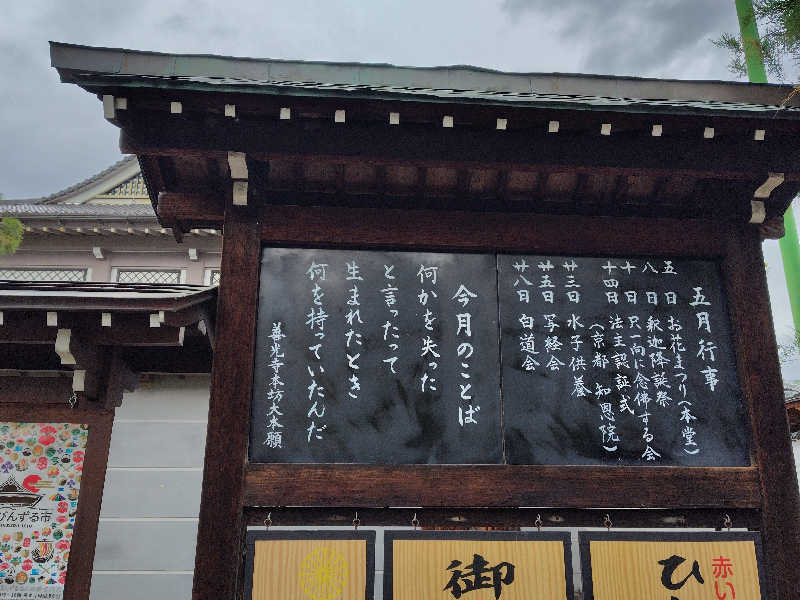 五月行事
五日 お花まつり(本堂)
八日 釈迦降誕祭
十日 只一向に念佛する会
十四日 法主認証式
(京都 知恩院)
廿三日 水子供養
廿五日 写経会
廿八日 白道会
今月のことば
何かを失った
と言ったって
生まれたとき
何を持っていたんだ
善光寺本坊大本願
びんずる市
御
ひ
赤い